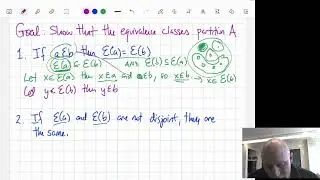 Goal: Show that the equivalence classes partition A
1. If a E b then E(a) = E(b)
E(a) ⊆ E(b) and E(b) ⊆ E(a)
Let x ∈ E(a) then x E a and a E b, so x E b → x ∈ E(b)
Let y ∈ E(b) then y E b
2. If E(a) and E(b) are not disjoint, they are
the same.